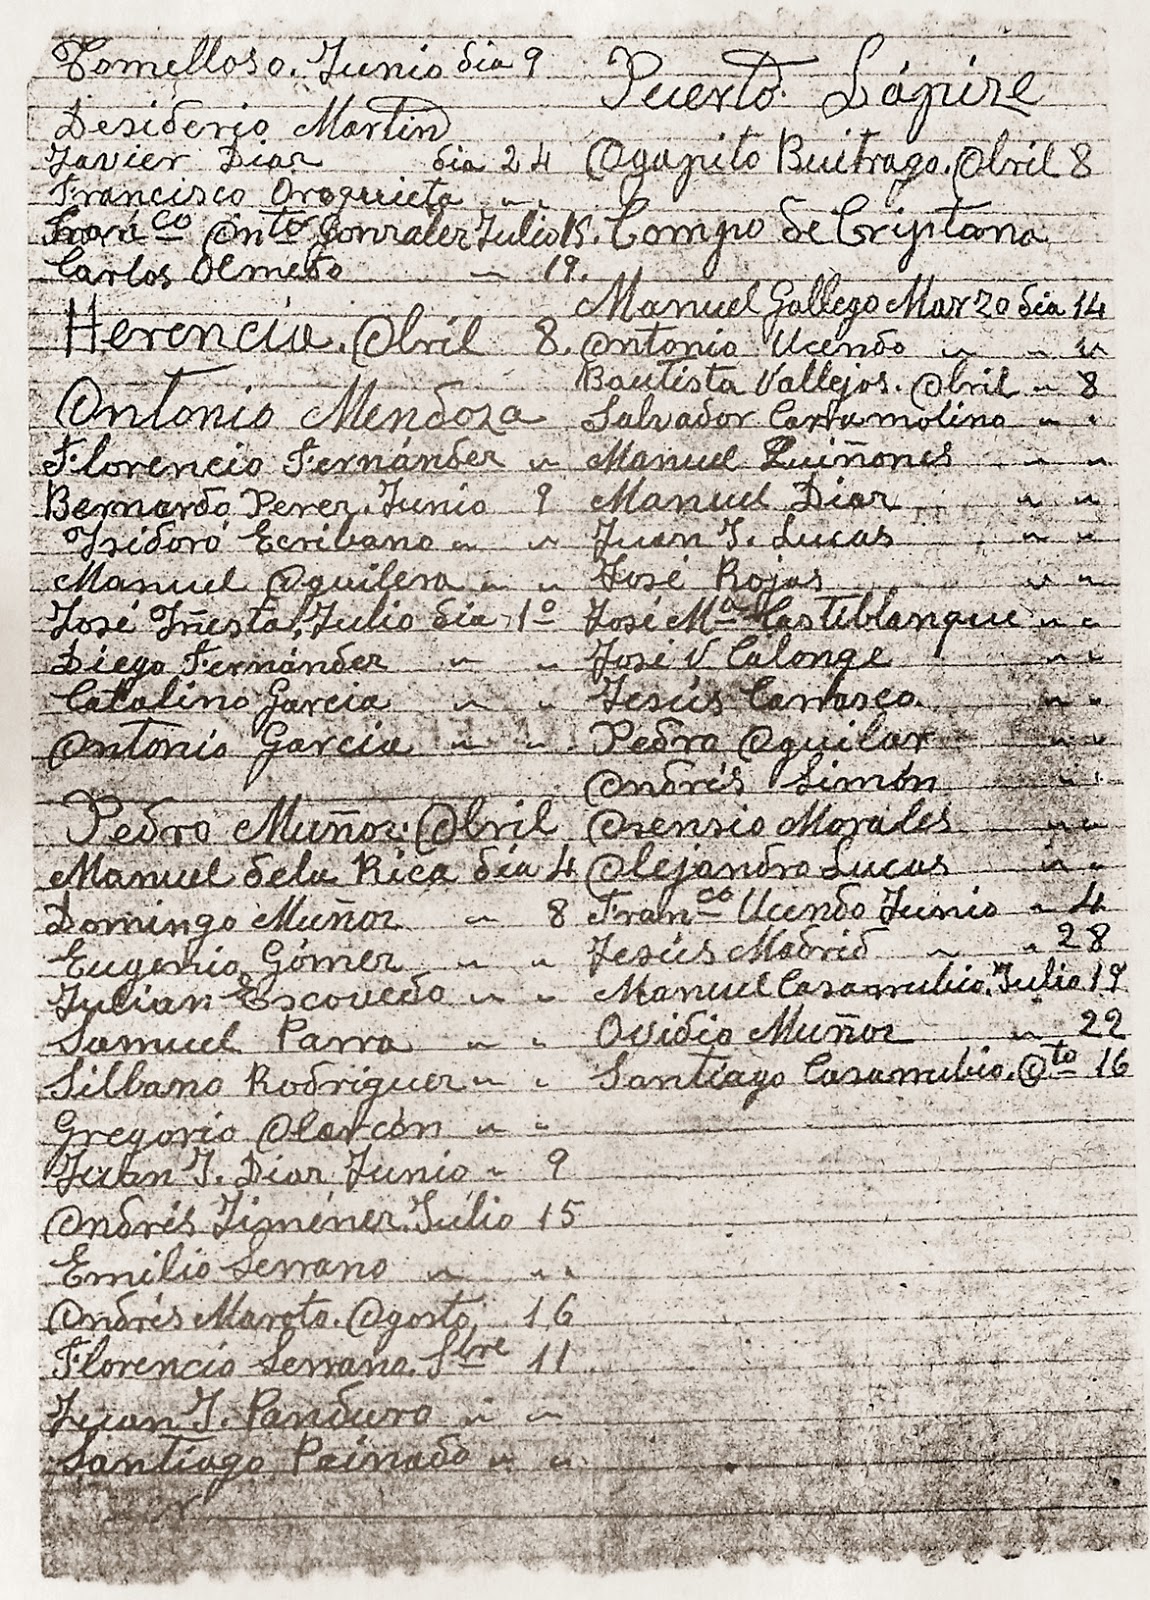 Tomelloso. Junio dia 9
Desiderio Martin
Javier Diaz dia 24
Francisco Oroquieta " "
Franco Anto Gonzalez Julio 15.
Carlos Olmedo " 19.
Herencia. Abril 8.
Antonio Mendoza
Florencio Fernández "
Bernardo Perez. Junio 9
Isidoro Ecribano " "
Manuel Aguilera " "
José Iñesta, Julio dia 1º
Diego Fernández " "
Catalino Garcia " "
Antonio Garcia " "
Pedro Muñoz. Abril
Manuel dela Rica dia 4
Domingo Muñoz " 8
Eugenio Gómez " "
Julian Escovedo " "
Samuel Parra " "
Silbano Rodriguez " "
Gregorio Alarcón " "
Juan J. Diaz Junio " 9
Andrés Jiménez. Julio 15
Emilio Serrano " "
Andrés Maroto. Agosto, 16
Florencio Serrano. Sbre 11
Juan J. Panduro " "
Santiago Peinado " "
Puerto Lápize
Agapito Buitrago. Abril 8
Campo de Criptana
Manuel Gallego Marzo dia 14
Antonio Ucendo " " "
Bautista Vallejos. Abril " 8
Salvador Cartamolino " "
Manuel Quiñones " "
Manuel Diaz " "
Juan J. Lucas " "
José Rojas " "
José Mª Castiblanque " "
José V Calonge " "
Jesús Carrasco. " "
Pedro Aguilar " "
Andrés Simón " "
Asensio Morales " "
Alejandro Lucas " "
Franco Ucendo Junio " 4
Jesús Madrid " " 28
Manuel Casarrubio. Julio 19
Ovidio Muñoz " 22
Santiago Casarrubio. Ato 16